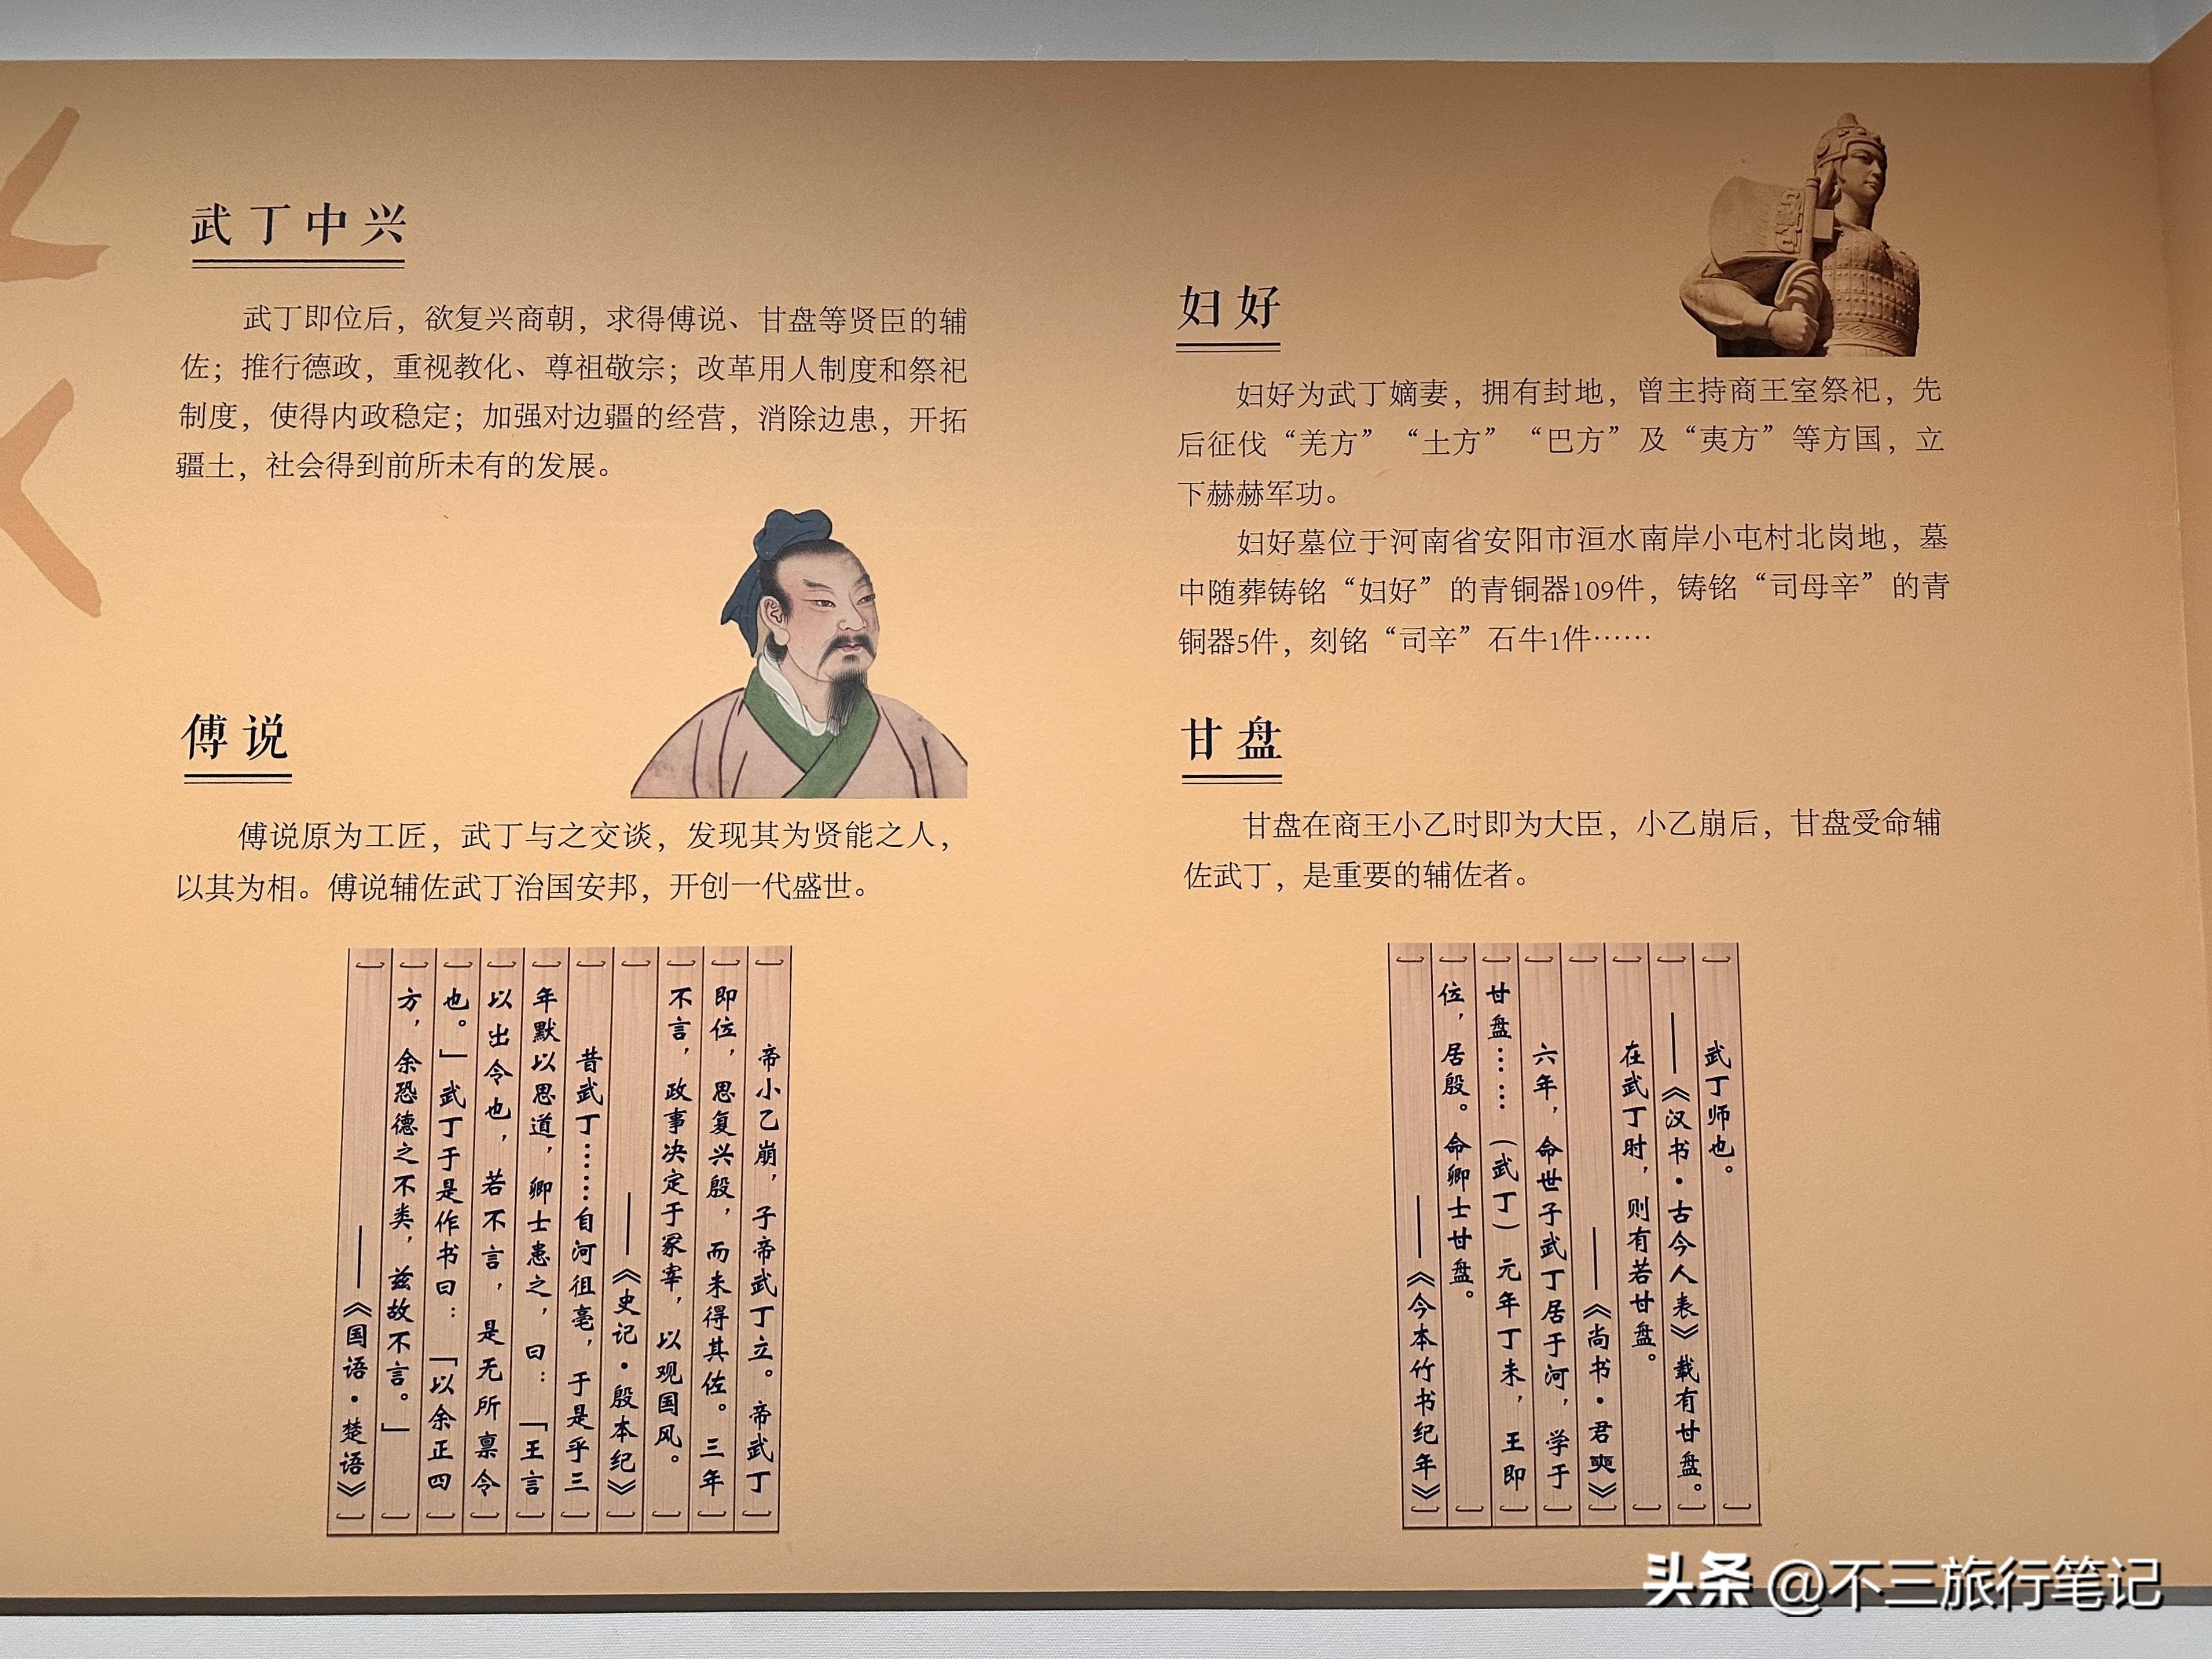 武丁中兴
武丁即位后，欲复兴商朝，求得傅说、甘盘等贤臣的辅
佐；推行德政，重视教化、尊祖敬宗；改革用人制度和祭祀
制度，使得内政稳定；加强对边疆的经营，消除边患，开拓
疆土，社会得到前所未有的发展。
傅说
傅说原为工匠，武丁与之交谈，发现其为贤能之人，
以其为相。傅说辅佐武丁治国安邦，开创一代盛世。
帝小乙崩，子帝武丁立。帝武丁
即位，思复兴殷，而未得其佐。三年
不言，政事决定于冢宰，以观国风。
——《史记·殷本纪》
昔武丁……自河徂亳，于是乎三
年默以思道，卿士患之，曰：「王言
以出令也，若不言，是无所禀令
也。」武丁于是作书曰：「以余正四
方，余恐德之不类，兹故不言。」
——《国语·楚语》
妇好
妇好为武丁嫡妻，拥有封地，曾主持商王室祭祀，先
后征伐“羌方”“土方”“巴方”及“夷方”等方国，立
下赫赫军功。
妇好墓位于河南省安阳市洹水南岸小屯村北岗地，墓
中随葬铸铭“妇好”的青铜器109件，铸铭“司母辛”的青
铜器5件，刻铭“司辛”石牛1件……
甘盘
甘盘在商王小乙时即为大臣，小乙崩后，甘盘受命辅
佐武丁，是重要的辅佐者。
武丁师也。
——《汉书·古今人表》载有甘盘。
在武丁时，则有若甘盘。
——《尚书·君奭》
六年，命世子武丁居于河，学于
甘盘……（武丁）元年丁未，王即
位，居殷。命卿士甘盘。
——《今本竹书纪年》
头条 @不三旅行笔记